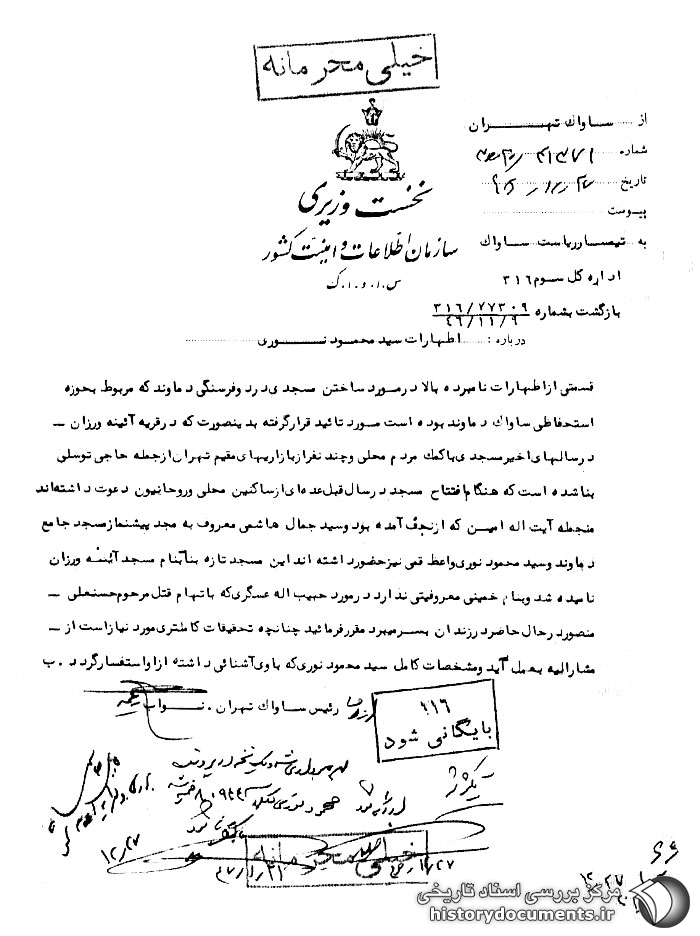 خیلی محرمانه
از ساواک تهران
شماره
تاریخ
پیوست
به تیمسار ریاست ساواک
اداره کل سوم ۳۱۶
بازگشت بشماره ۳۱۶/۷۷۳۰۹
۴۹/۱۱/۹
نخست وزیری
سازمان اطلاعات و امنیت کشور
س.ا.و.ا.ک
درباره : اظهارات سید محمود نوری
قسمتی از اظهارات نامبرده بالا در مورد ساختن مسجدی در دوفرسنگی دماوند که مربوط بحوزه
استحفاظی ساواک دماوند بوده است مورد تائید قرار گرفته بدینصورت که در قریه آئینه ورزان –
در سالهای اخیر مسجدی با کمک مردم محلی و چند نفر از بازاریهای مقیم تهران از جمله حاجی توسلی
بنا شده است که هنگام افتتاح مسجد در سال قبل عده ای از ساکنین محلی و روحانیون دعوت داشته اند
منجمله آیت اله امین که از نجف آمده بود و سید جمال هاشمی معروف به مجد پیشنماز مسجد جامع
دماوند و سید محمود نوری واعظ قمی نیز حضور داشته اند این مسجد تازه بنا بنام مسجد آئینه ورزان
نامیده شد و بنام خمینی معروفیتی ندارد در مورد حبیب اله عسگری که با تهام قتل مرحوم حسنعلی –
منصور در حال حاضر در زندان بسر میبرد مقرر فرمائید چنانچه تحقیقات کاملتری مورد نیاز است از –
مشارالیه بعمل آید و مشخصات کامل سید محمود نوری که با وی آشنائی داشته از او استفسار گردد . ب
رئیس ساواک تهران . نواب
۱۱۶
بایگانی شود
۱۲/۲۷
خیلی محرمانه
مرکز بررسی اسناد تاریخی
historydocuments.ir